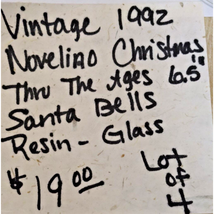 Vintage 1992
Novelino Christmas
Thru The Ages 6.5"
Santa Bells
Resin - Glass
$19.00
Lot
of
4